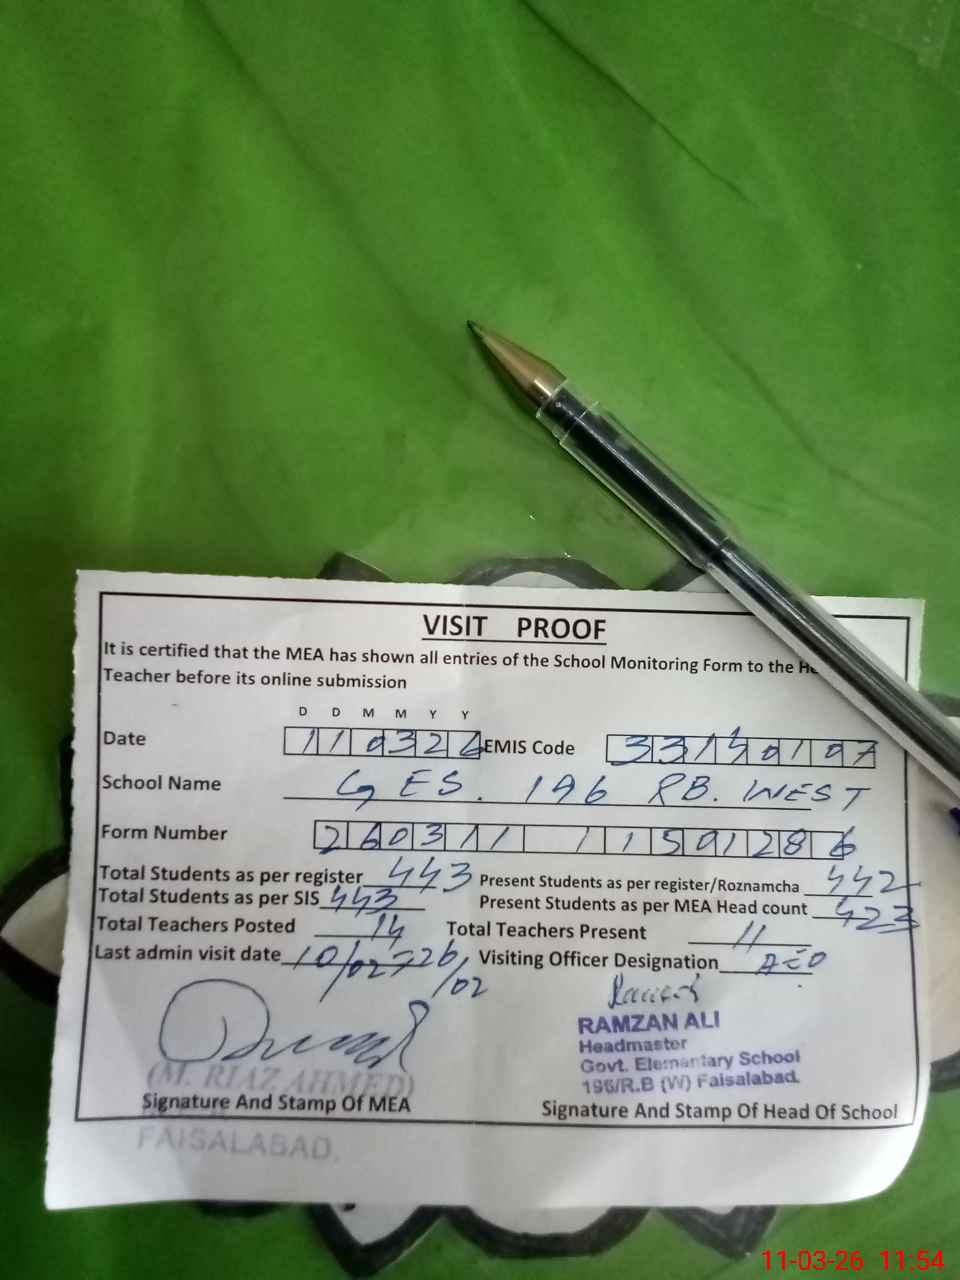 VISIT PROOF
It is certified that the MEA has shown all entries of the School Monitoring Form to the He
Teacher before its online submission
D D M M Y Y
Date 110326 EMIS Code
School Name GES. 196 RB. WEST
Form Number 260311 11591286
Total Students as per register 443 Present Students as per register/Roznamcha 442
Total Students as per SIS 443 Present Students as per MEA Head count 423
Total Teachers Posted 14 Total Teachers Present 11
Last admin visit date 10/02 26/02 Visiting Officer Designation AEO
RAMZAN ALI
Headmaster
Govt. Elementary School
196/R.B (W) Faisalabad.
(M. RIAZ AHMED)
Signature And Stamp Of MEA Signature And Stamp Of Head Of School
FAISALABAD.
11-03-26 11:54